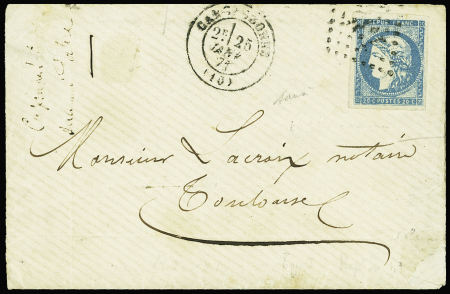 CARCASSONNE
2E 25
JANV
71
(10)
REPUB. FRANC.
20 C POSTES 20 C
Monsieur Lacroix notaire
Toulouse